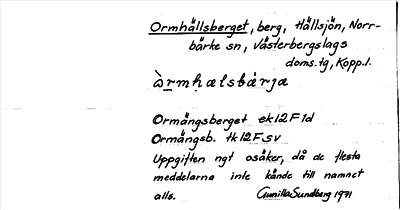 Ormhällsberget, berg, Hällsjön, Norr-
bärke sn, Västerbergslags
doms.tg, Kopp.l.
Ormängsberget ek12F1d
Ormängsb. tk12Fsv
Uppgiften ngt osäker, då de flesta
meddelarna inte kände till namnet
alls. Gunilla Sundberg 1971